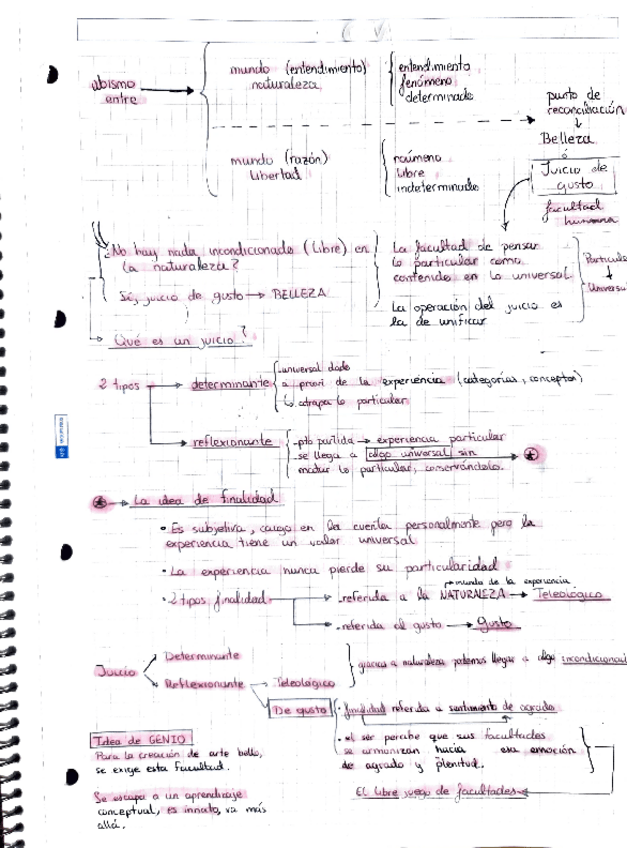 abismo
entre
mundo (entendimiento)
naturaleza
entendimiento
fenómeno
determinado
punto de
reconciliación
Belleza
ó
Juicio de
gusto
facultad
humana
mundo (razón)
Libertad
noúmeno
Libre
indeterminado
¿No hay nada incondicionado (Libre) en
la naturaleza?
Sí, juicio de gusto → BELLEZA
La facultad de pensar
lo particular como
contenido en lo universal.
La operación del juicio es
la de unificar
Particular
Universal
Qué es un juicio?
2 tipos
determinante
-universal dado
a priori de la experiencia (categorías, conceptos)
↳ atrapa lo particular
reflexionante
-pto partida → experiencia particular
-se llega a algo universal sin
matar lo particular, conservándolo.
La idea de finalidad
• Es subjetiva, caigo en la cuenta personalmente pero la
experiencia tiene un valor universal
• La experiencia nunca pierde su particularidad
• 2 tipos finalidad
mundo de la experiencia
-referida a la NATURALEZA → Teleológico
-referida al gusto → gusto
Juicio
Determinante
Reflexionante
Teleológico
gracias a naturaleza podemos llegar a algo incondicionado
De gusto
• finalidad referida a sentimiento de agrado
• el ser percibe que sus facultades
se armonizan hacia esa emoción
de agrado y plenitud.
El libre juego de facultades
Idea de GENIO
Para la creación de arte bello,
se exige esta facultad.
Se escapa a un aprendizaje
conceptual, es innato, va más
allá.